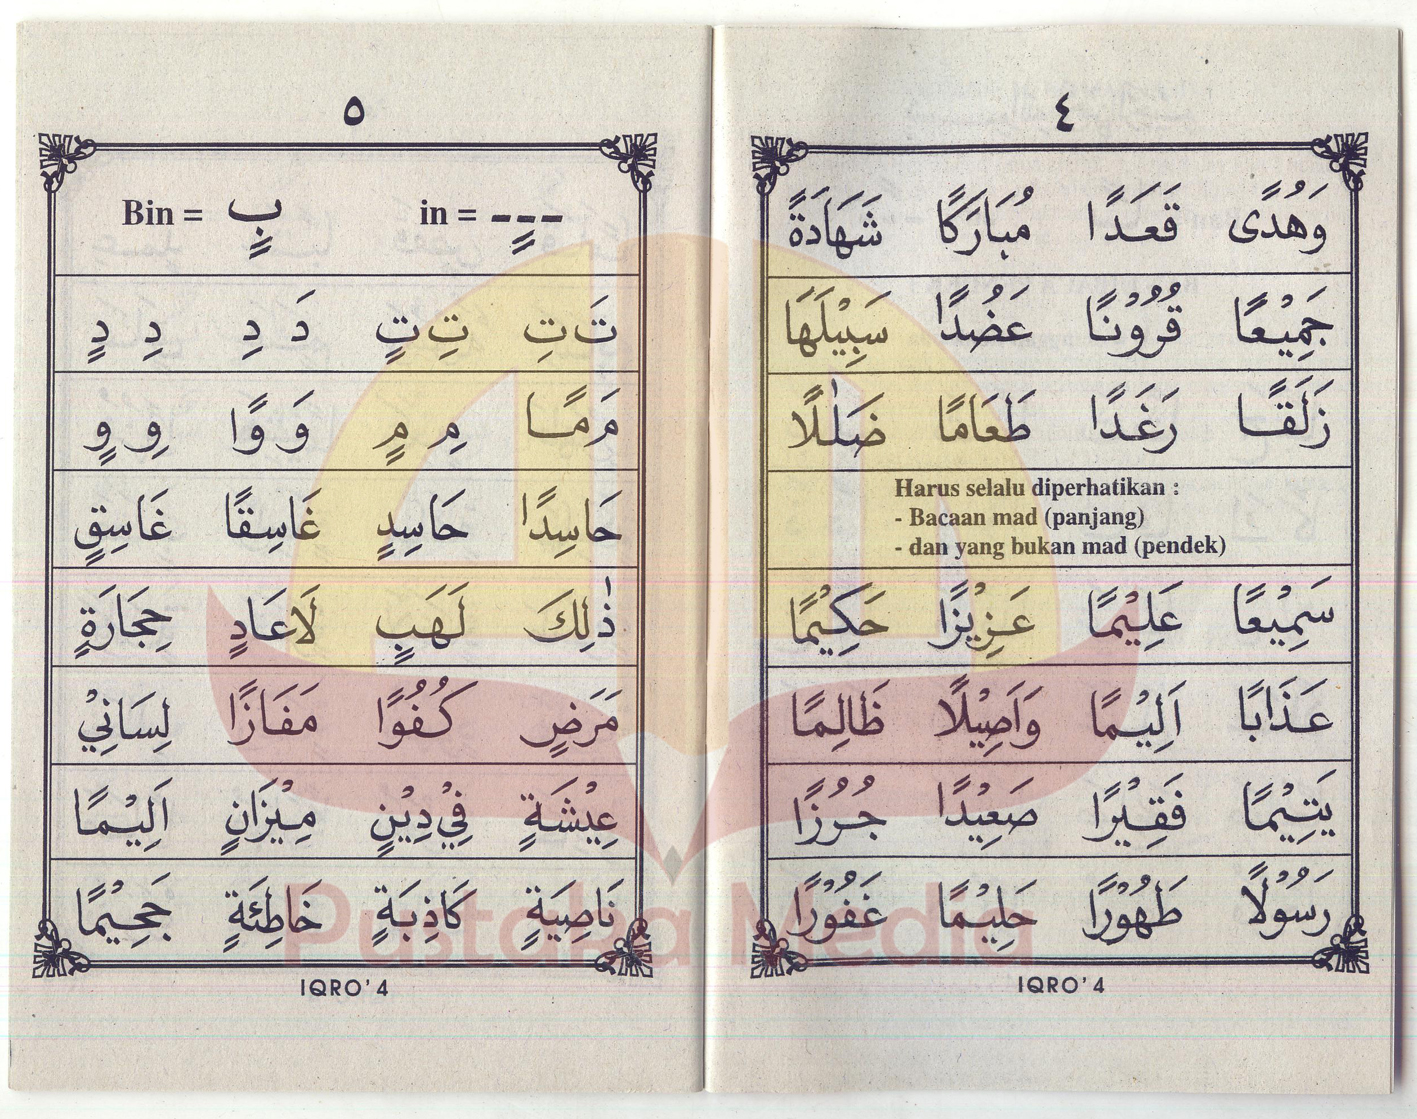 ٤
وَهُدًى قَعَدًا مُبَارَكًا شَهَادَةً
جَمِيْعًا قُرُوْنًا عَضُدًا سَبِيْلَهَا
زَلَقًا رَغَدًا طَعَامًا ضَلٰلًا
Harus selalu diperhatikan :
- Bacaan mad (panjang)
- dan yang bukan mad (pendek)
سَمِيْعًا عَلِيْمًا عَزِيْزًا حَكِيْمًا
عَذَابًا اَلِيْمًا وَاَصِيْلًا ظَالِمًا
يَتِيْمًا فَقِيْرًا صَعِيْدًا جُرُزًا
رَسُوْلًا طَهُوْرًا حَلِيْمًا غَفُوْرًا
IQRO' 4
٥
Bin = بٍ in = ---ٍ
تَ تِ تِ تٍ دَ دِ دِ دٍ
مَ مًا مِ مٍ وَ وًا وِ وٍ
حَاسِدًا حَاسِدٍ غَاسِقًا غَاسِقٍ
ذٰلِكَ لَهَبٍ لَاعَادٍ حِجَارَةٍ
مَرَضٍ كُفُوًا مَفَازًا لِسَانِيْ
عِيْشَةٍ فِيْ دِيْنٍ مِيْزَانٍ اَلِيْمًا
نَاصِيَةٍ كَاذِبَةٍ خَاطِئَةٍ جَحِيْمًا
IQRO' 4
Pustaka Media